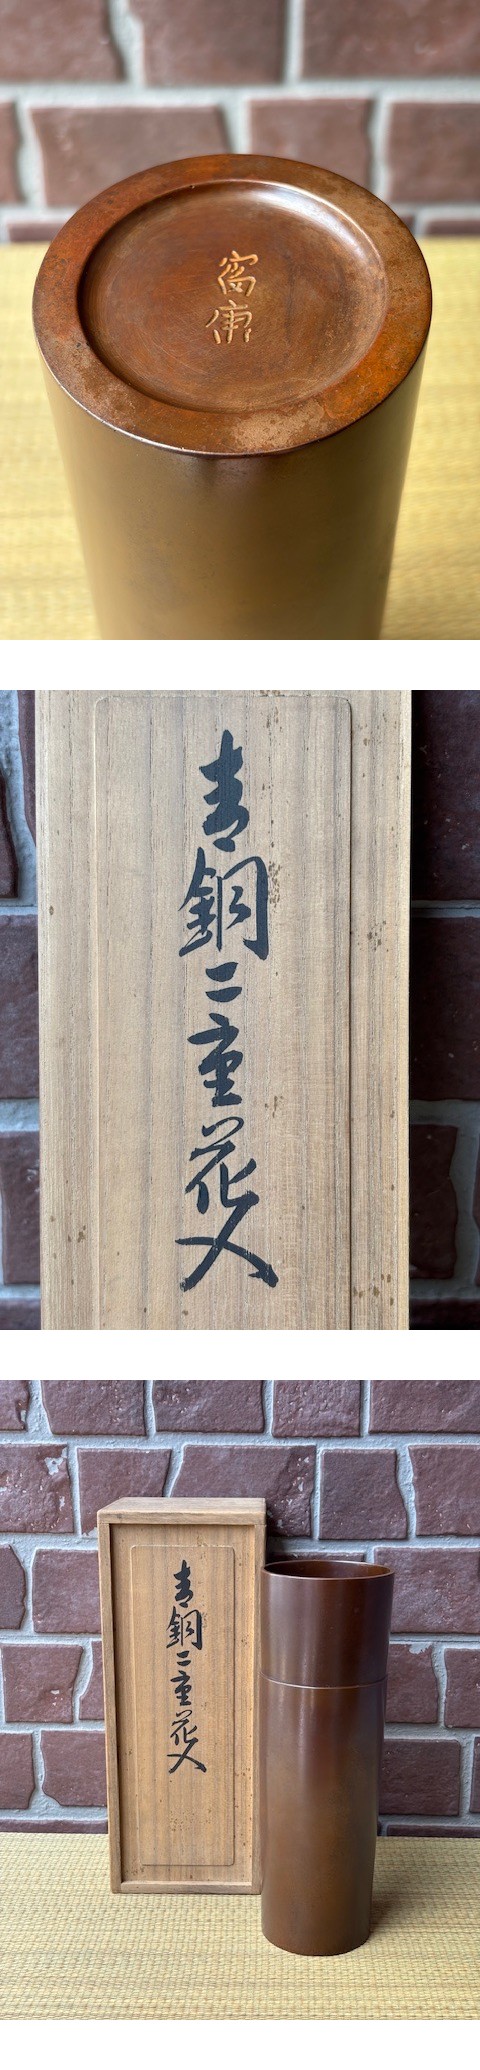 青銅二重花入
青銅二重花入